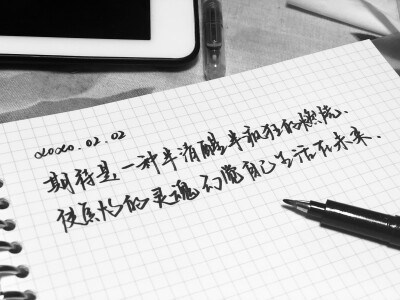 2020.02.02
期待是,一种半清醒半疯狂的燃烧、
使焦灼的灵魂幻觉自己生活在未来.